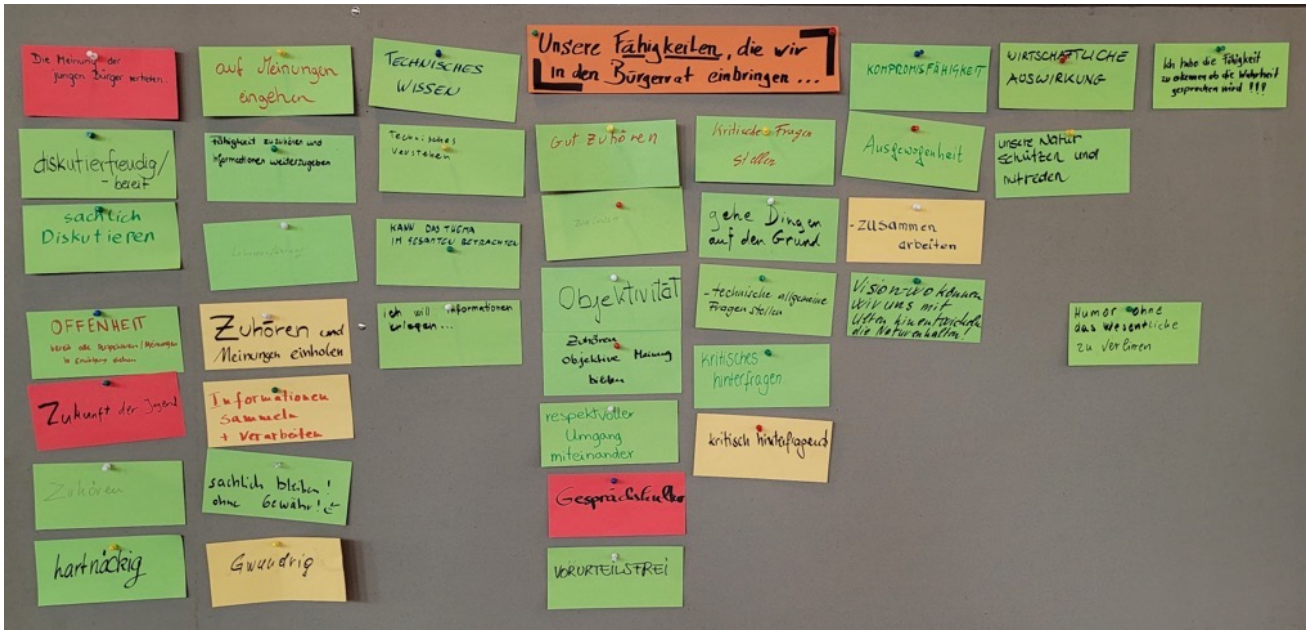 Unsere Fähigkeiten, die wir
in den Bürgerrat einbringen ...
Die Meinung der
jungen Bürger vertreten.
diskutierfreudig/
- bereit
sachlich
Diskutieren
OFFENHEIT
bereit alle Perspektiven / Meinungen
in Erwägung ziehen
Zukunft der Jugend
Zuhören
hartnäckig
auf Meinungen
eingehen
Fähigkeit zuzuhören und
Informationen weiterzugeben
Zuhören und
Meinungen einholen
Informationen
sammeln
+ verarbeiten
sachlich bleiben!
ohne Gewähr!
Gwundrig
TECHNISCHES
WISSEN
Technisches
Verstehen
KANN DAS THEMA
IM GESAMTEN BETRACHTEN
ich will informationen
...
Gut zuhören
Objektivität
Zuhören
Objektive Meinung
bilden
respektvoller
Umgang
miteinander
Gesprächskultur
VORURTEILSFREI
Kritische Fragen
stellen
gehe Dingen
auf den Grund
- technische allgemeine
Fragen stellen
kritisches
hinterfragen
kritisch hinterfragend
KOMPROMISFÄHIGKEIT
Ausgewogenheit
- zusammen
arbeiten
Vision - wo können
wir uns mit
hin entwickeln
die Natur erhalten!
WIRTSCHAFTLICHE
AUSWIRKUNG
unsere Natur
schützen und
mitreden
Humor ohne
das Wesentliche
zu verlieren
Ich habe die Fähigkeit
zu erkennen ob die Wahrheit
gesprochen wird !!!